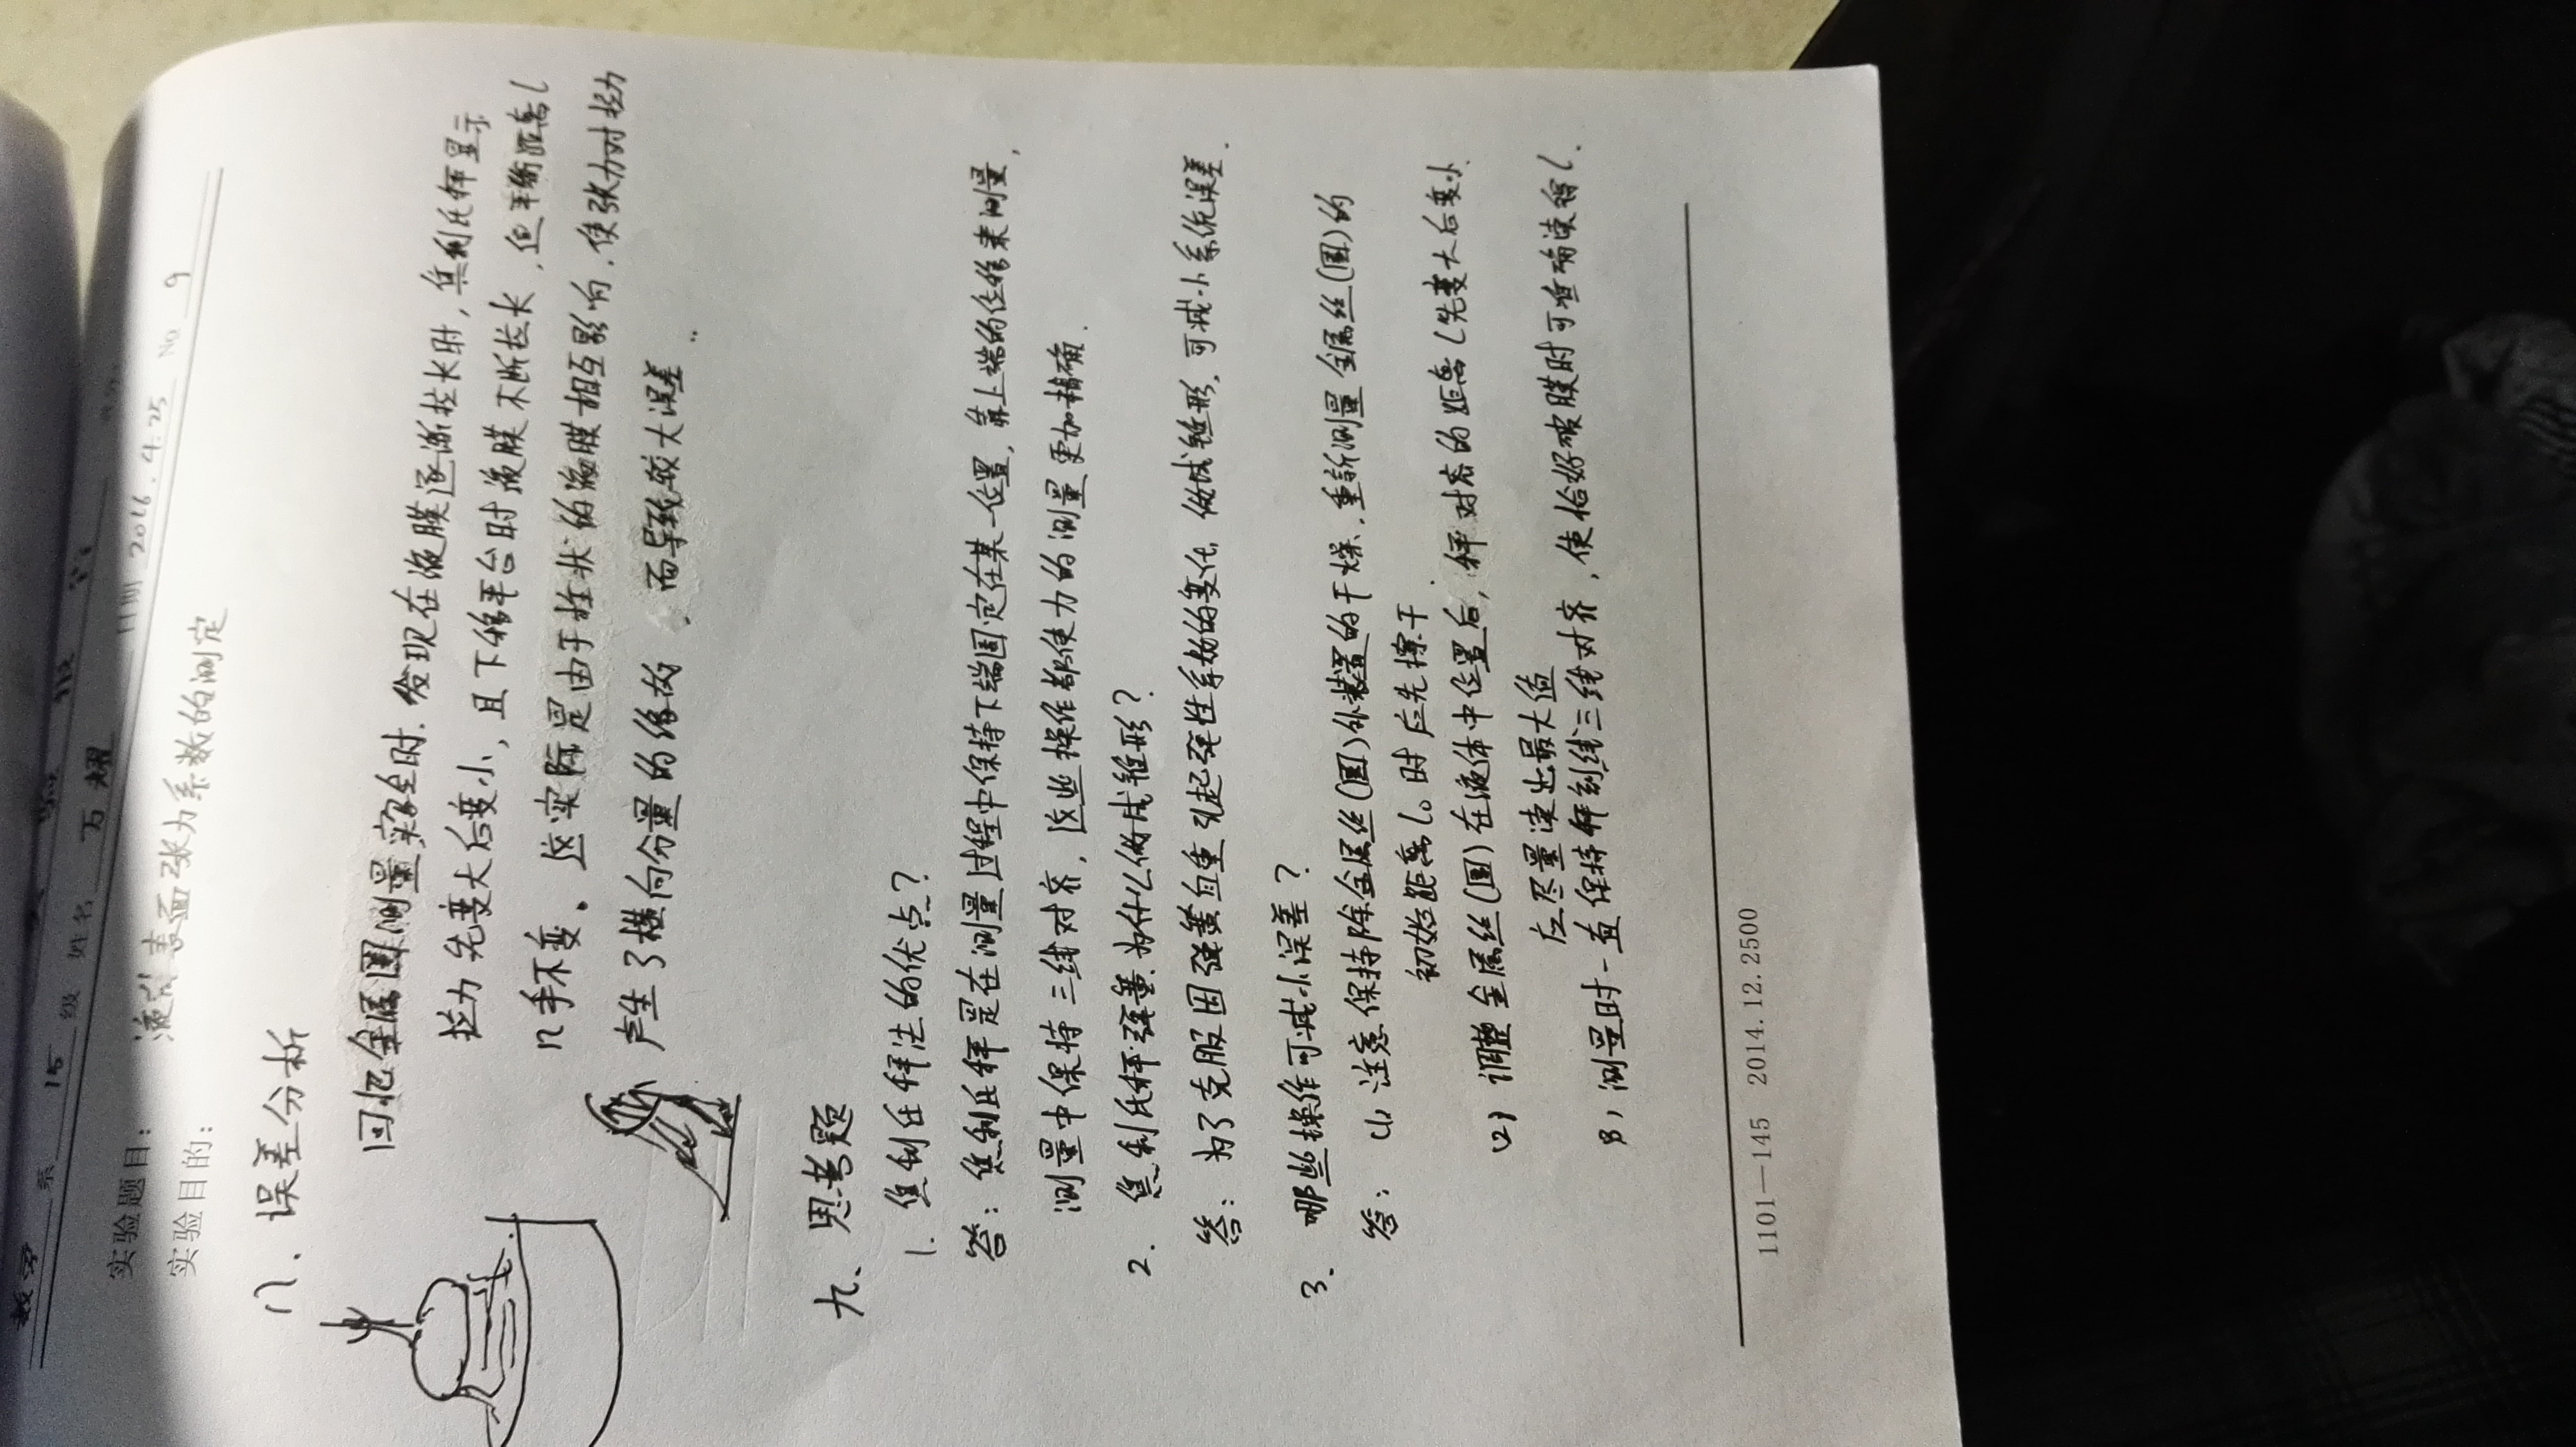 数学 系 15 级 姓名 万耀 日期 2016.4.25 No 9
实验题目: 液体表面张力系数的测定
实验目的:
八、误差分析
回忆金属圆测量实验时. 发现在液膜逐渐拉长时, 焦利氏秤显示
拉力先变大后变小, 且下移平台时液膜不断拉长, 但平衡距离l
几乎不变。这实际是由于柱状的液膜相互影响, 使张力对拉力
产生了横向分量的 而导致较大误差
九、思考题
1. 焦利氏秤法的优点?
答: 焦利氏秤是在测量过程中保持下端固定在某一位置, 靠上端的位移来测量,
测量中保持三线对齐, 这些操作都使力的测量更加精确.
2. 焦利氏秤弹簧为什么做成锥形?
答: 为了克服因弹簧自重引起弹性系数的变化, 做成锥形, 可减小系统误差.
3. 哪些操作可减小误差?
答: (1) 注意保持除金属丝(圆)外装置的干燥, 重新测量金属丝(圆)的
初始距离l₀时应先擦干
(2) 调整金属丝(圆)在液体中位置后, 秤对齐的距离l先变大后变小
应尽量读出最大值
(3) 测量时一直保持秤刻线三线对齐, 使恰好破膜时可准确读得l.
1101—145 2014.12.2500